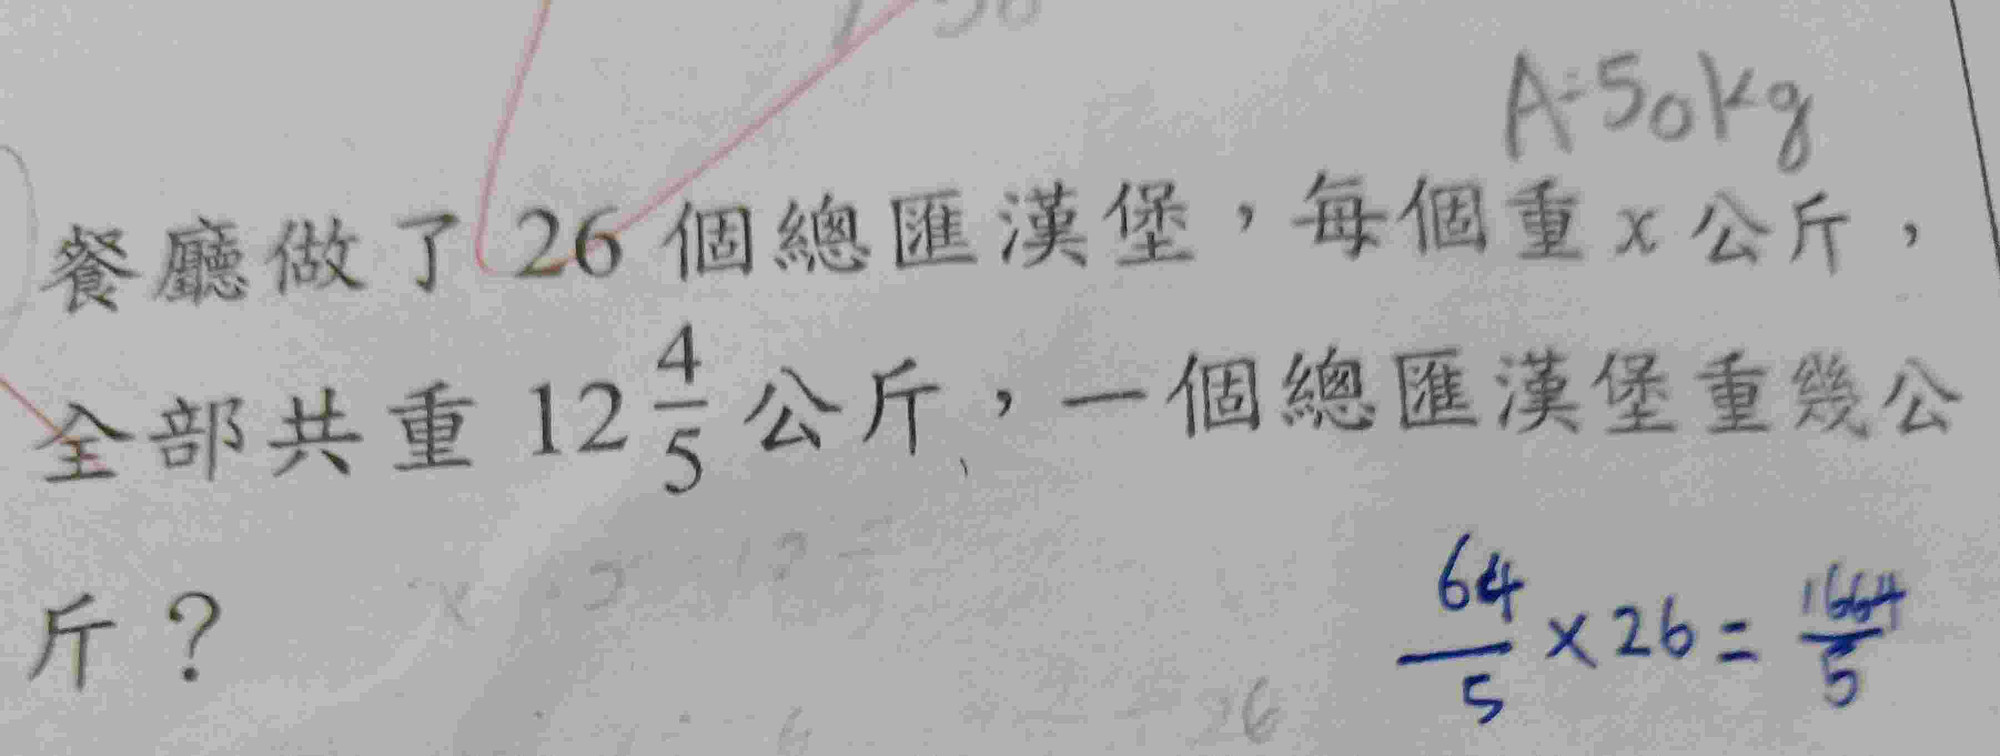 A=50kg
餐廳做了26個總匯漢堡，每個重x公斤，
全部共重12 4/5 公斤，一個總匯漢堡重幾公
斤？
64/5 × 26 = 1664/5
26